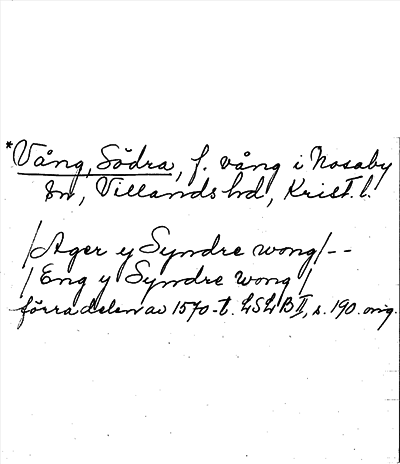 *Vång, Södra, f. vång i Nosaby
sn, Villands hd, Krist. l.
/Ager y Syndre wong/--
/Eng y Syndre wong/
förra delen av 1570-t. LSLB II, s. 190. orig.